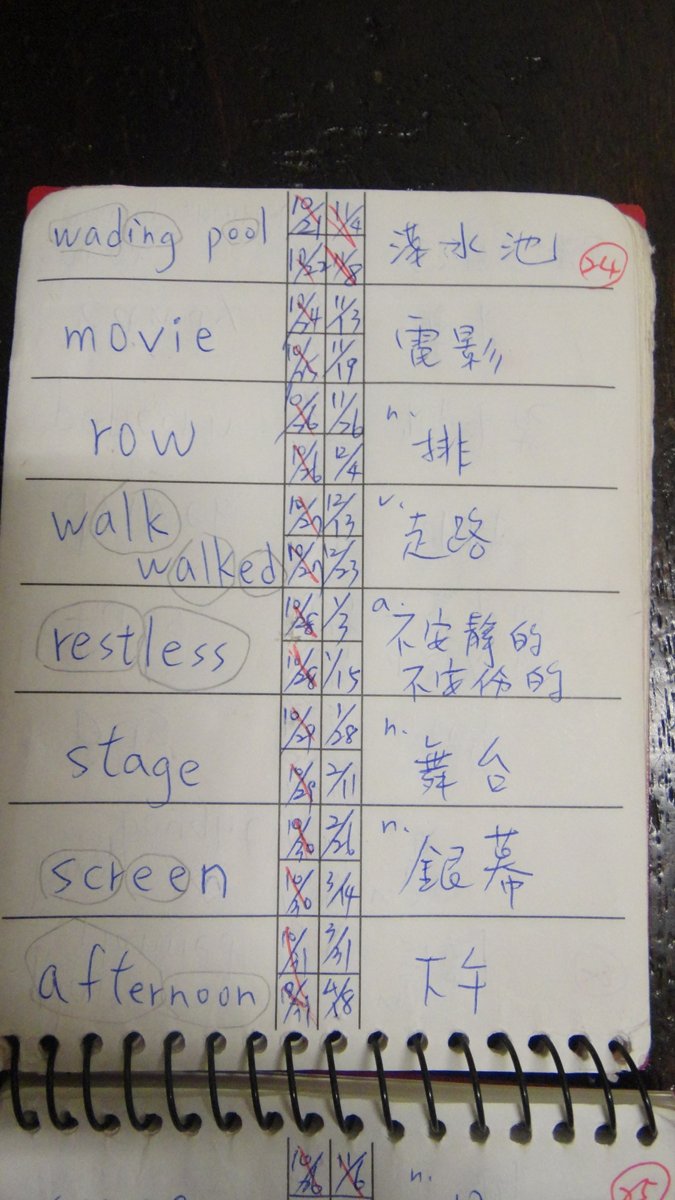 wading pool 10/21 11/4 淺水池 24
10/22 11/8
movie 10/24 11/13 電影
10/25 11/19
row 10/26 11/26 n. 排
10/26 12/4
walk 10/27 12/13 v. 走路
walked 10/27 12/23
restless 10/28 1/3 a. 不安靜的
10/28 1/15 不安份的
stage 10/29 1/28 n. 舞台
10/29 2/11
screen 10/30 2/26 n. 銀幕
10/30 3/14
afternoon 10/31 3/31 下午
10/31 4/18
11/6 n. 25